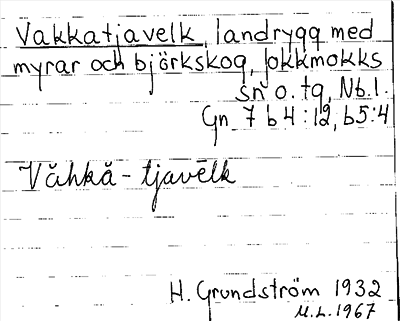 Vakkatjavelk, landrygg med
myrar och björkskog, Jokkmokks
sn o. tg, Nb.l.
Gn 7 b 4 : 12, b5:4
Văhkă - tjavēlk
H. Grundström 1932
M.L. 1967